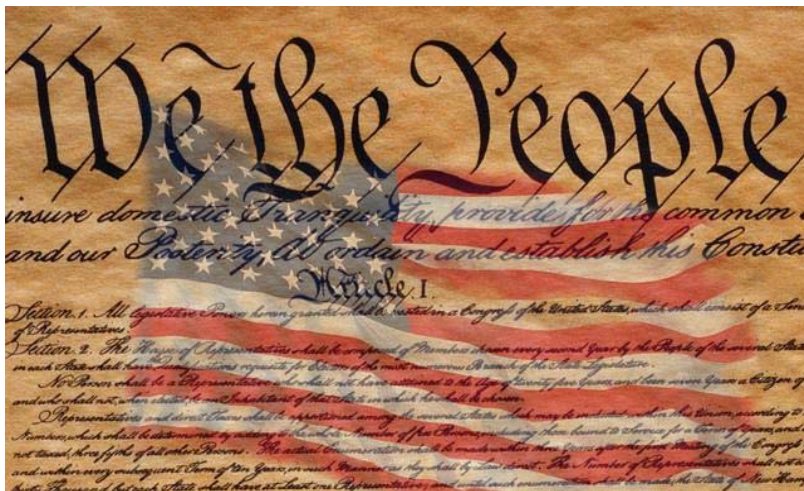 We the People
insure domestic Tranquility, provide for the common
and our Posterity, do ordain and establish this Constit
Article I.
Section. 1. All legislative Powers herein granted shall be vested in a Congress of the United States, which shall consist of a Sen
of Representatives.
Section. 2. The House of Representatives shall be composed of Members chosen every second Year by the People of the several States
in each State shall have the Qualifications requisite for Electors of the most numerous Branch of the State Legislature.
No Person shall be a Representative who shall not have attained to the Age of twenty five Years, and been seven Years a Citizen of
and who shall not, when elected, be an Inhabitant of that State in which he shall be chosen.
Representatives and direct Taxes shall be apportioned among the several States which may be included within this Union, according to
Numbers, which shall be determined by adding to the whole Number of free Persons, including those bound to Service for a Term of Years, and
not taxed, three fifths of all other Persons. The actual Enumeration shall be made within three Years after the first Meeting of the Congress of
and within every subsequent Term of ten Years, in such Manner as they shall by Law direct. The Number of Representatives shall not
thirty Thousand, but each State shall have at Least one Representative; and until such enumeration shall be made, the State of New Hamp